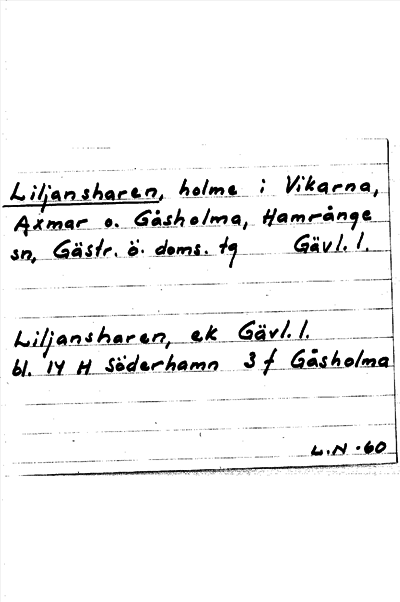 Liljansharen, holme i Vikarna,
Axmar o. Gåsholma, Hamrånge
sn, Gästr. ö. doms. tg Gävl. l.
Liljansharen, ek Gävl. l.
bl. 14 H Söderhamn 3 f Gåsholma
L.N -60